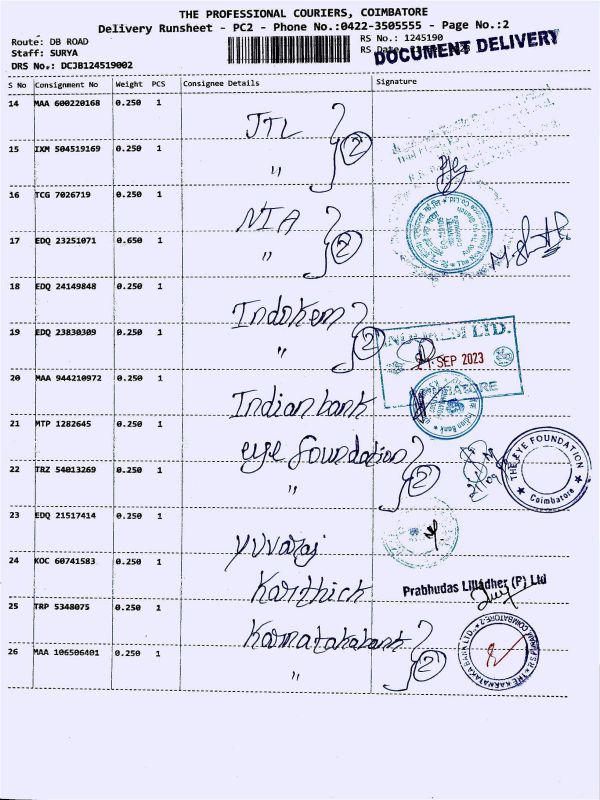 THE PROFESSIONAL COURIERS, COIMBATORE
Delivery Runsheet - PC2 - Phone No.:0422-3505555 - Page No.:2
Route: DB ROAD
RS No.: 1245190
Staff: SURYA
RS Date:
DOCUMENT DELIVERY
DRS No.: DCJB124519002
S No Consignment No Weight PCS Consignee Details Signature
14 MAA 600220168 0.250 1 JTL 2
15 IXM 504519169 0.250 1 "
16 TCG 7026719 0.250 1 NIA 2
17 EDQ 23251071 0.650 1 "
18 EDQ 24149848 0.250 1 Indokem 2
19 EDQ 23830309 0.250 1 "
LTD.
21 SEP 2023
20 MAA 944210972 0.250 1 Indian bank
Indian Bank
21 MTP 1282645 0.250 1 eye foundation 2
22 TRZ 54013269 0.250 1 "
THE EYE FOUNDATION
Coimbatore
23 EDQ 21517414 0.250 1 yuvaraj
24 KOC 60741583 0.250 1 Karthick
Prabhudas Lilladher (P) Ltd
25 TRP 5348075 0.250 1 Karnatakabank 2
26 MAA 106506401 0.250 1 "
THE KARNATAKA BANK LTD.